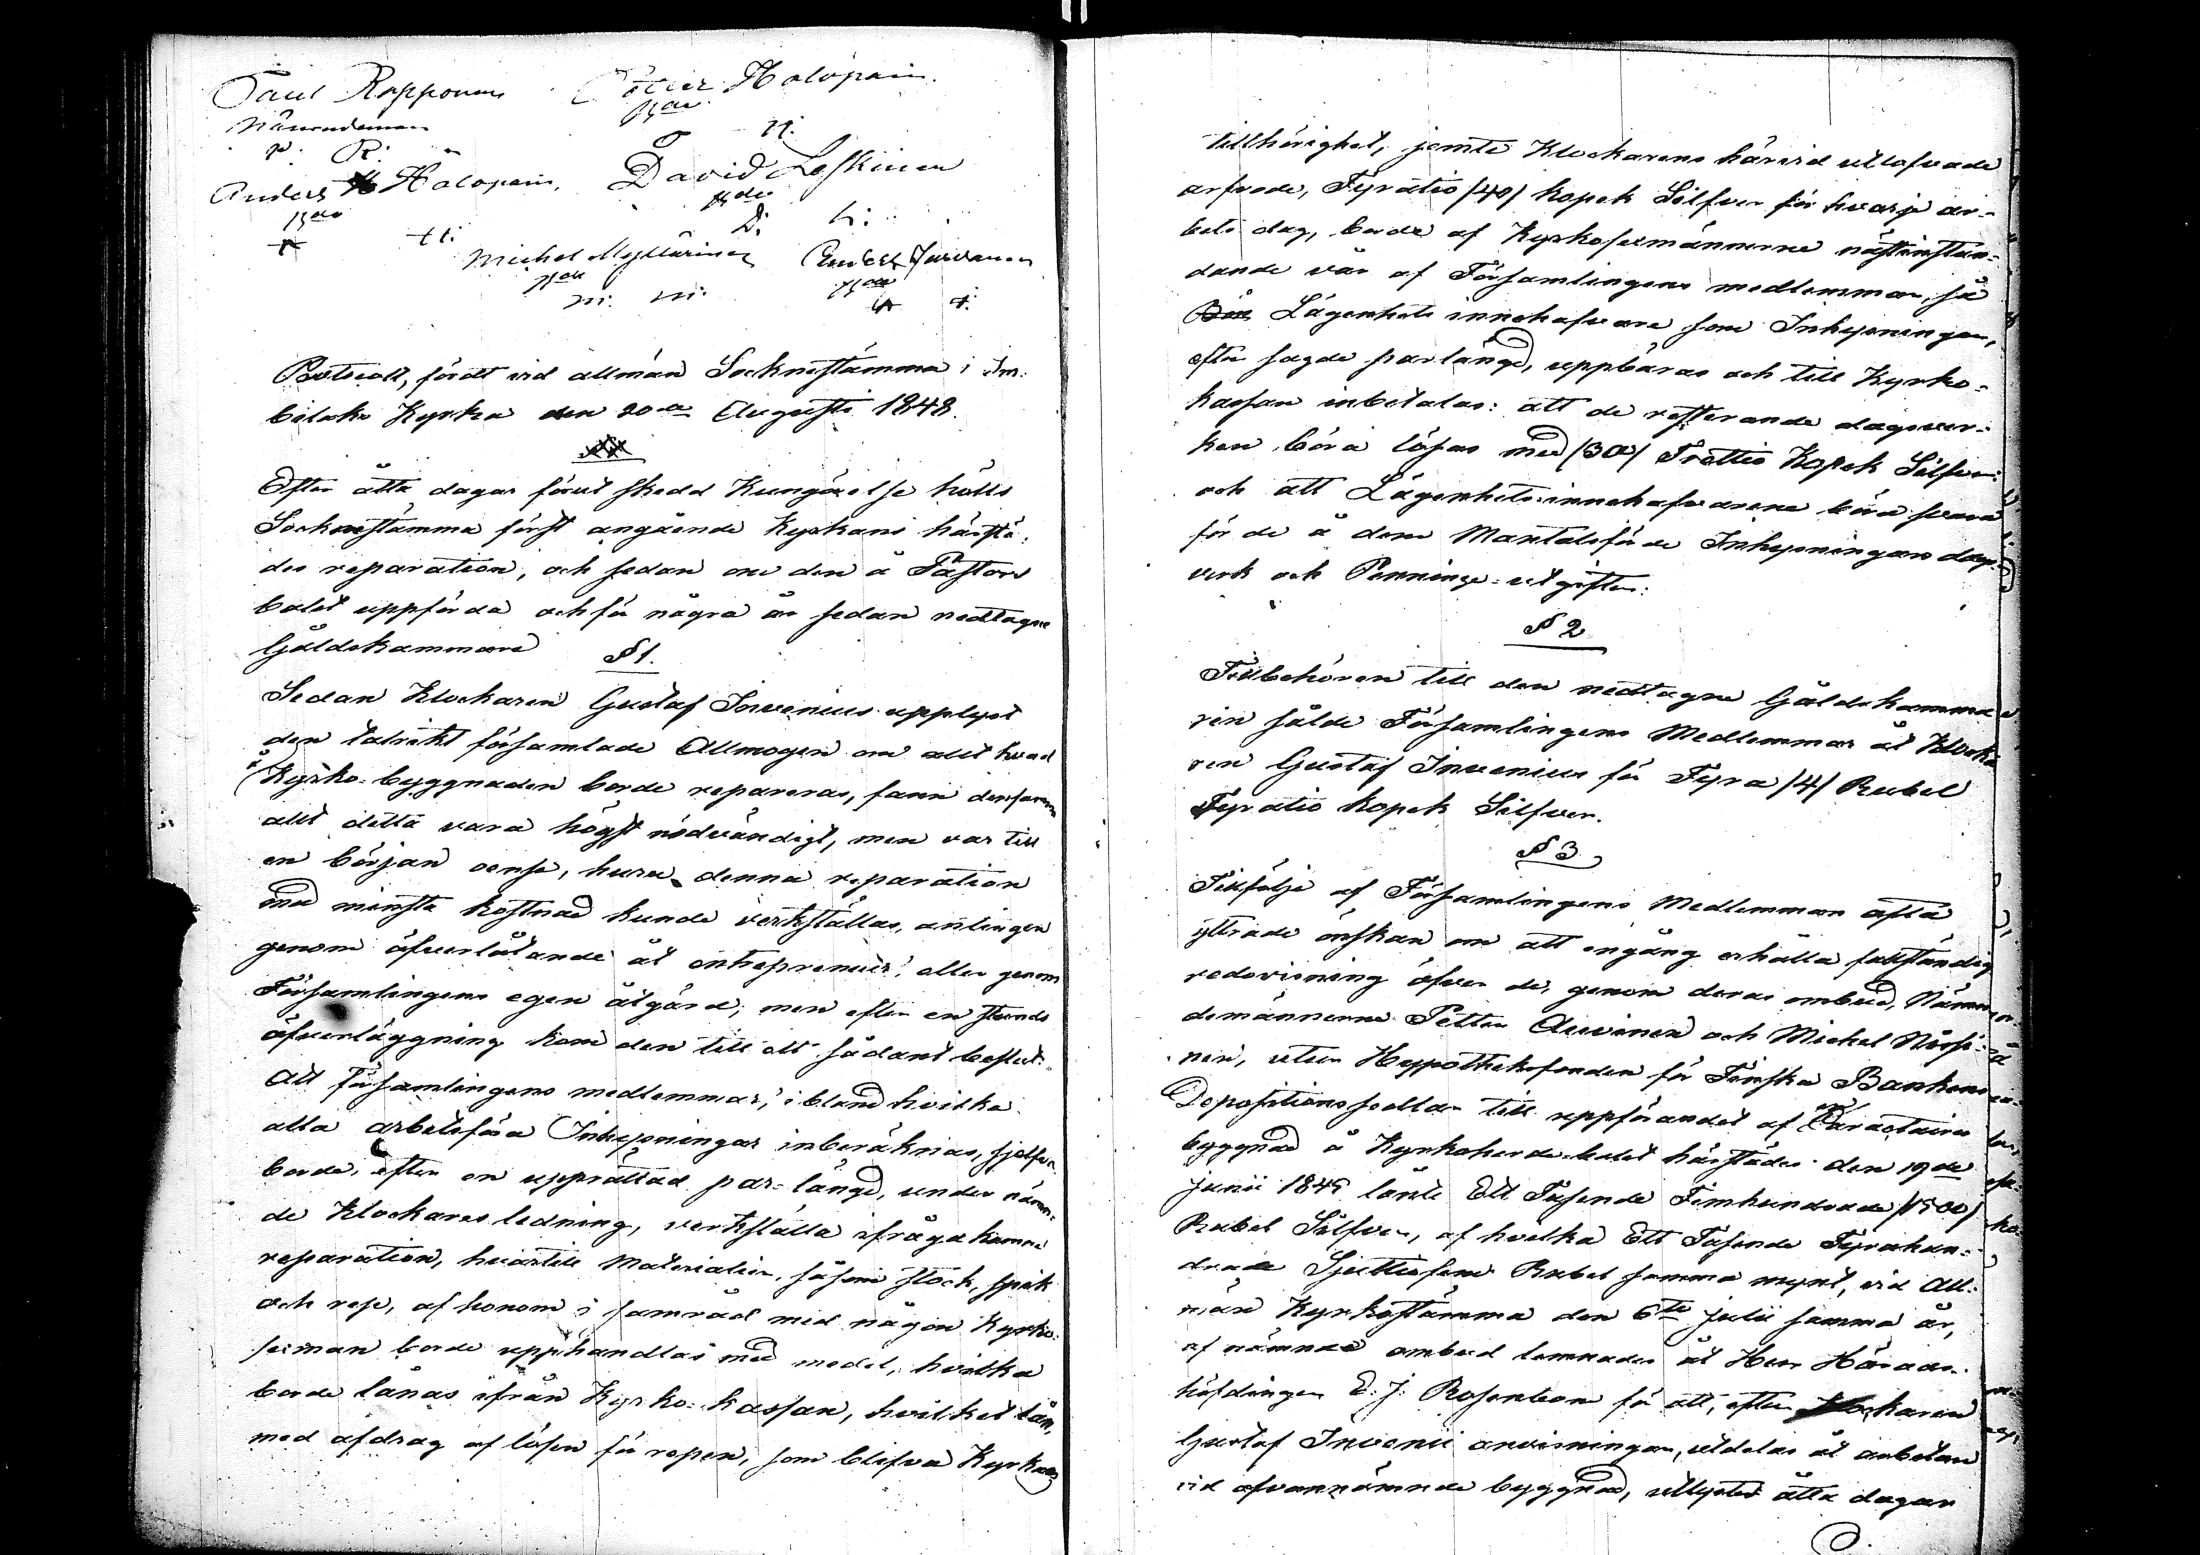 Paul Ropponen Petter Halopain.
Nämndeman
P. R. P. H.
Anders Halopain. David Leskinen
A H: D: L:
Michel Myllärinen Anders Turunen
M: M: A T:
Protocoll, fördt vid allmän Sockenstämma i Im-
bilaks Kyrka den 20de Augusti 1848.
Efter åtta dagar förut skedd Kungörelse hölls
Sockenstämma först angående Kyrkans härstä-
des reparation, och sedan om den å Pastors
bolet uppförda och för några år sedan nedtagne
Gäldskammare
§ 1.
Sedan Klockaren Gustaf Invenius upplyst
den talrikt församlade Allmogen om allt hvad
å Kyrko-byggnaden borde repareras, fann densamma
allt detta vara högst nödvändigt, men var till
en början oense, huru denna reparation
med minsta kostnad kunde verkställas, antingen
genom öfverlåtande åt entrepreneur eller genom
Församlingens egen åtgärd; men efter en stunds
öfverläggning kom den till ett sådant beslut:
Att församlingens medlemmar, ibland hvilka
alla arbetsföra Inhysningar inberäknas, sjelfva
borde, efter en upprättad par-längd, under nämn-
de Klockares ledning, verkställa ifrågakomne
reparation, hvartill Materialier, såsom stock, spik
och rep, af honom i samråd med någon Kyrko-
sexman borde upphandlas med medel, hvilka
borde lånas ifrån Kyrko-kassan, hvilket lån,
med afdrag af lösen för repen, som blifva Kyrkans
tillhörighet, jemte Klockarens härvid utlofvade
arfvode, Fyratio /40/ kopek Silfver för hvarje ar-
bets dag, borde af Kyrkosexmännerne nästinstun-
dande vår af Församlingens medlemmar, så
Lägenhets innehafvare som Inhysningar,
efter sagde parlängd, uppbäras och till Kyrko-
kassan inbetalas: att de resterande dagsver-
ken böra lösas med /30/ Trettio Kopek Silfver:
och att Lägenhets-innehafvarene böra svara
för de å dem Mantalsförde Inhysningars dags-
verk och Penninge-utgifter.
§ 2
Tillbehören till den nedtagne Gäldskamma-
ren sålde Församlingens Medlemmar åt Klocka-
ren Gustaf Invenius för Fyra /4/ Rubel
Fyratio kopek Silfver.
§ 3
Tillfölje af Församlingens Medlemmars ofta
yttrade önskan om att engång erhålla fullständig
redovisning öfver de, genom deras ombud, Nämn-
demännerne Petter Auvinen och Michel
nen, utur Hypotheksfonden för Finska Bankens
Depositions sedlar till uppförandet af
byggnad å Kyrkoherde-bolet härstädes den 19de
Junii 1845 lånte Ett Tusende Femhundrade /1500/
Rubel Silfver, af hvilka Ett Tusende Fyrahun-
drade Sjuttiofem Rubel samma mynt, vid All-
män Kyrkostämma den 6te Julii samma år,
af nämnde ombud lemnades åt Herr Härads-
höfdingen E. J. Rosenbom för att, efter Klockaren
Gustaf Invenii anvisningar, utdelas åt arbetare
vid ofvannämnde byggnad, utlystes åtta dagar